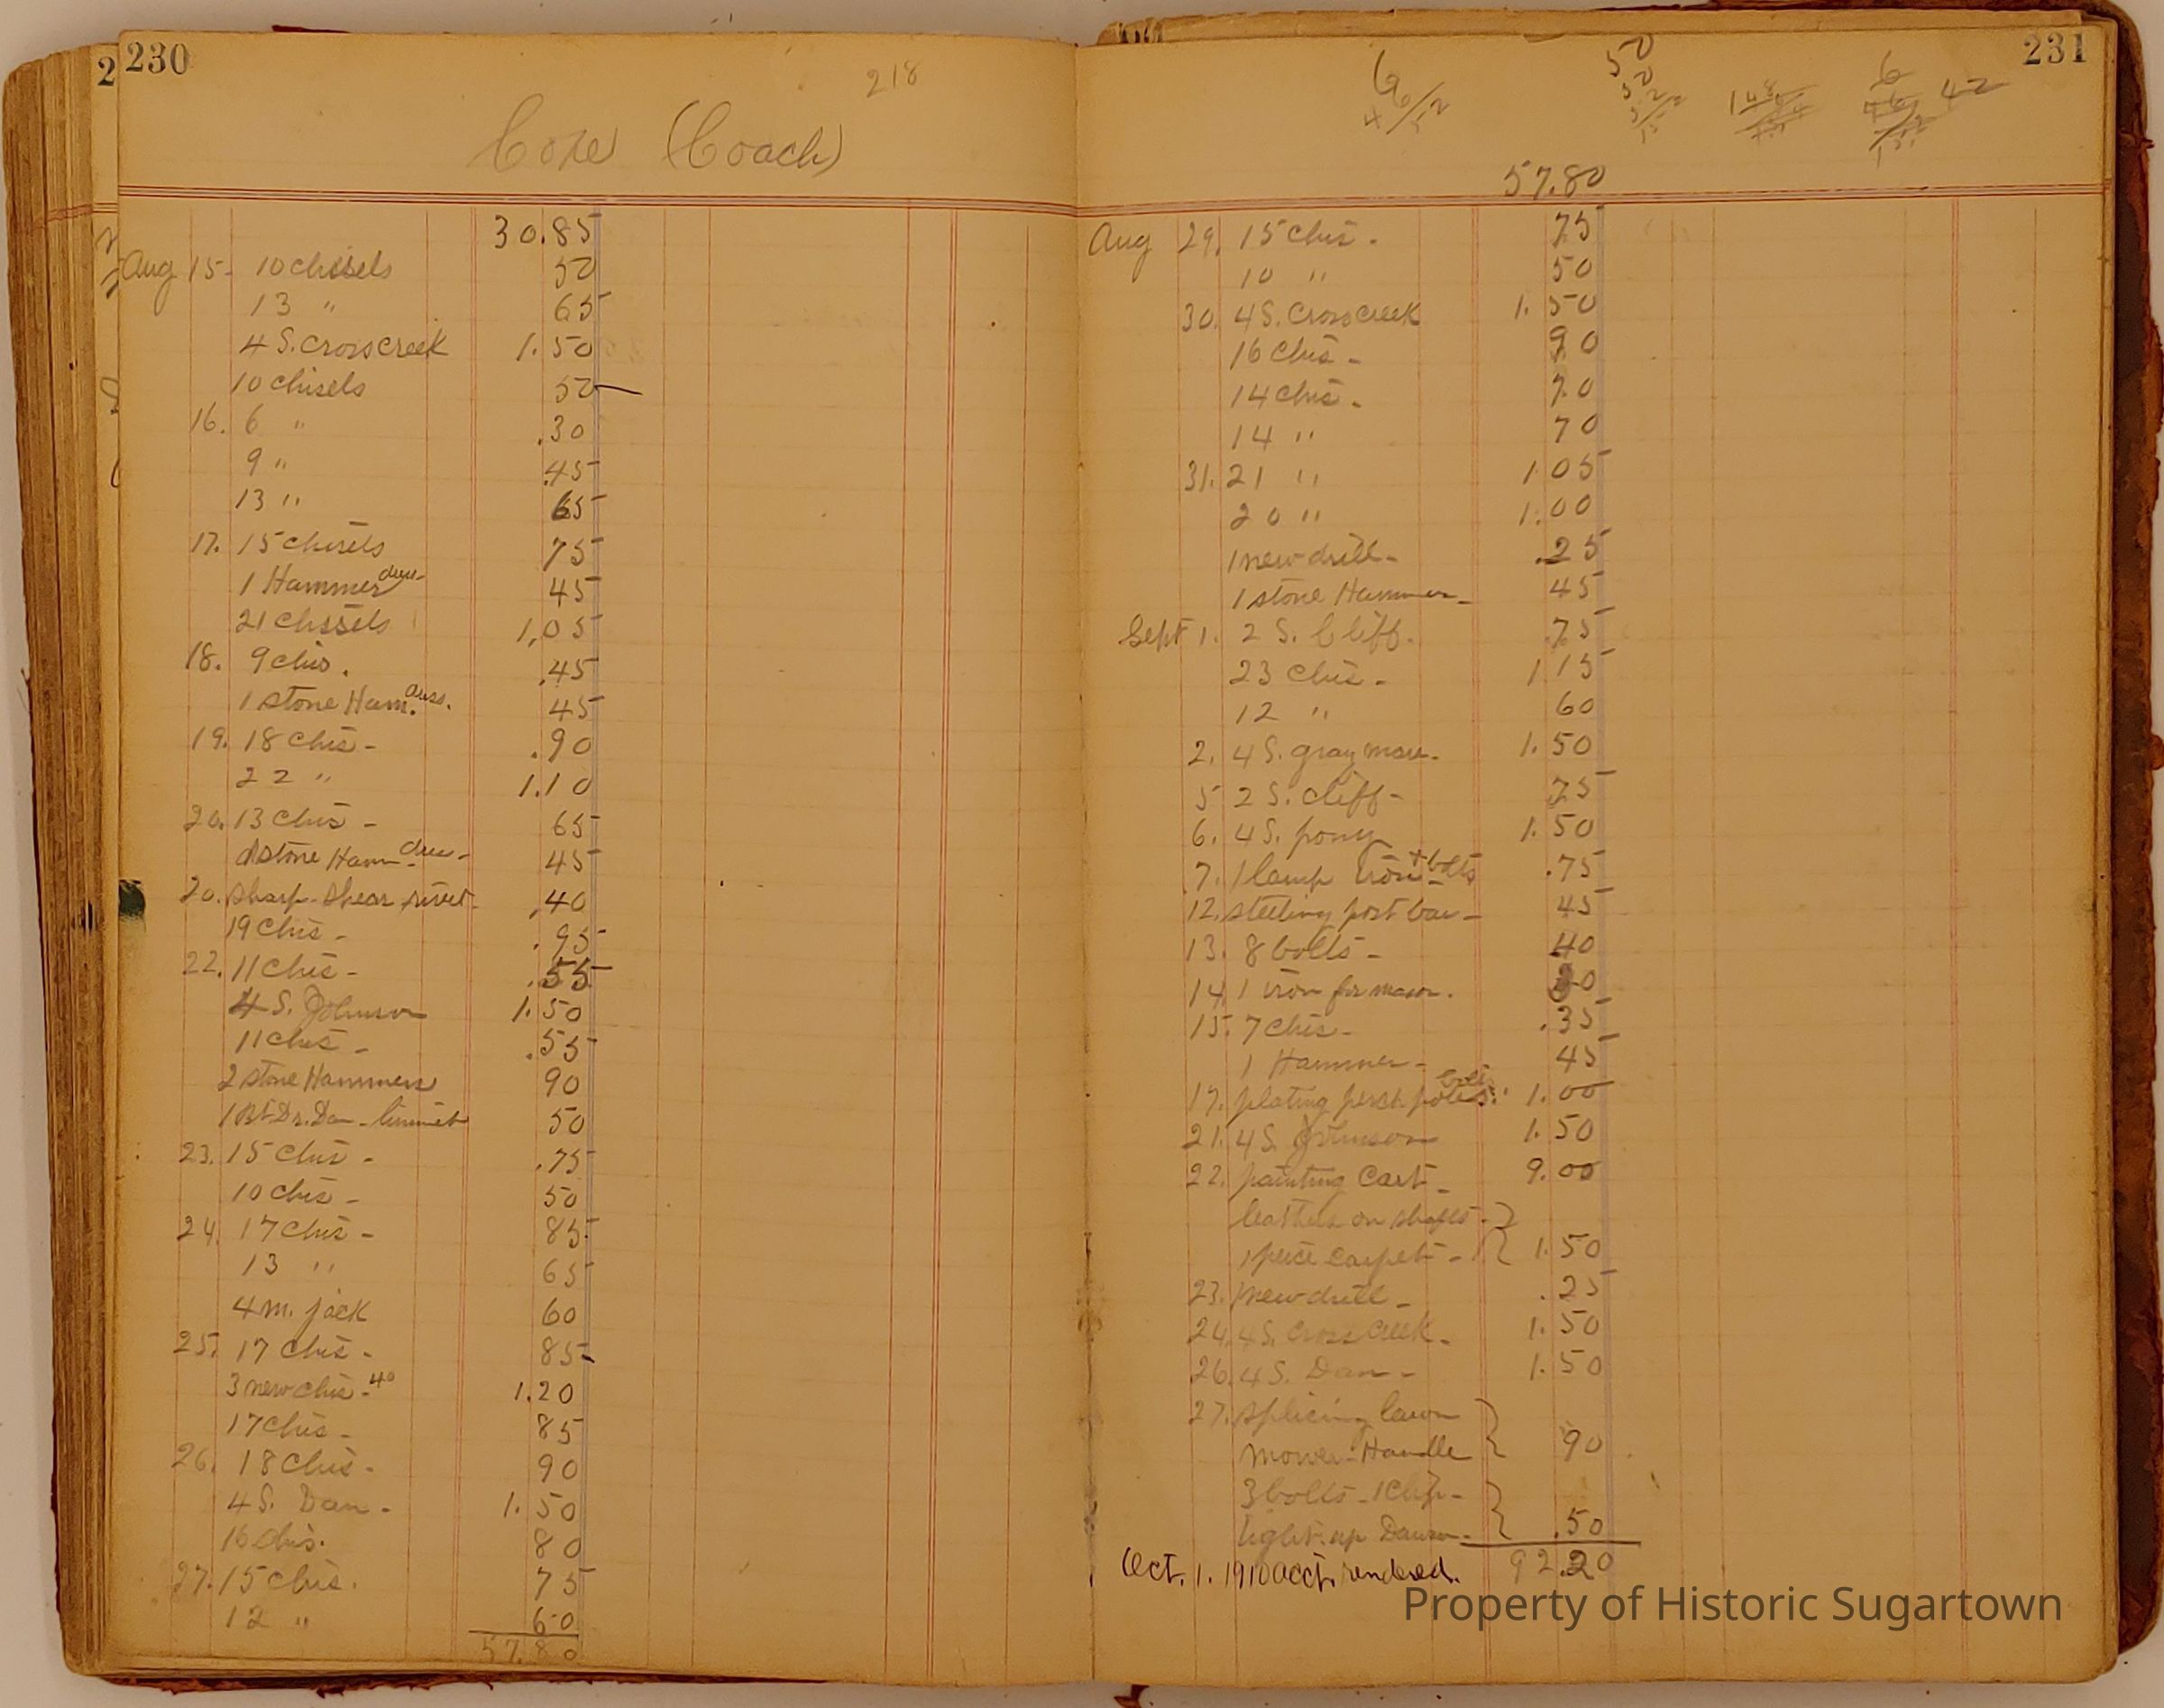 230
218
Coxe (Coach)
30.85
Aug 15- 10 chisels 50
13 " 65
4 S. Crosscreek 1.50
10 chisels 50
16. 6 " .30
9 " .45
13 " 65
17. 15 chisels 75
1 Hammer 45
21 chissels 1,05
18. 9 chis. .45
1 stone Ham. 45
19. 18 chis- .90
22 " 1.10
20. 13 chis- 65
1 stone Ham- 45
20. sharp. shear rivet- .40
19 chis- .95
22. 11 chis- .55
4 S. Johnson 1.50
11 chis- .55
2 stone Hammers 90
1 Bt Dr. Dan- 50
23. 15 chis- .75
10 chis- 50
24. 17 chis- 85
13 " 65
4 m. jack 60
25. 17 chis- 85
3 new chis- 40 1.20
17 chis- 85
26. 18 chis- 90
4 S. Dan- 1.50
16 chis. 80
27. 15 chis. 75
12 " 60
57.80
231
57.80
Aug 29. 15 chis. 75
10 " 50
30. 4 S. Crosscreek 1.50
16 chis- 90
14 chis- 70
14 " 70
31. 21 " 1.05
20 " 1.00
1 new drill- .25
1 stone Hammer- 45
Sept 1. 2 S. Cliff. .75
23 chis- 1.15
12 " 60
2. 4 S. gray mare. 1.50
5 2 S. cliff- 75
6. 4 S. pony 1.50
7. 1 lamp iron + bolts .75
12. post bar- 45
13. 8 bolts- 40
14. 1 iron for mason.
15. 7 chis- .35
1 Hammer- 45
17. plating 1.00
21. 4 S. Johnson 1.50
22. painting Cart- 9.00
leathers on shafts-
1 peice carpet- 1.50
23. new drill- .25
24. 4 S. Cross Creek- 1.50
26. 4 S. Dan- 1.50
27. splicing lawn
mower Handle 90
3 bolts- 1 clip-
light. up Dawson. .50
Oct. 1. 1910 acct. rendered. 92.20
Property of Historic Sugartown